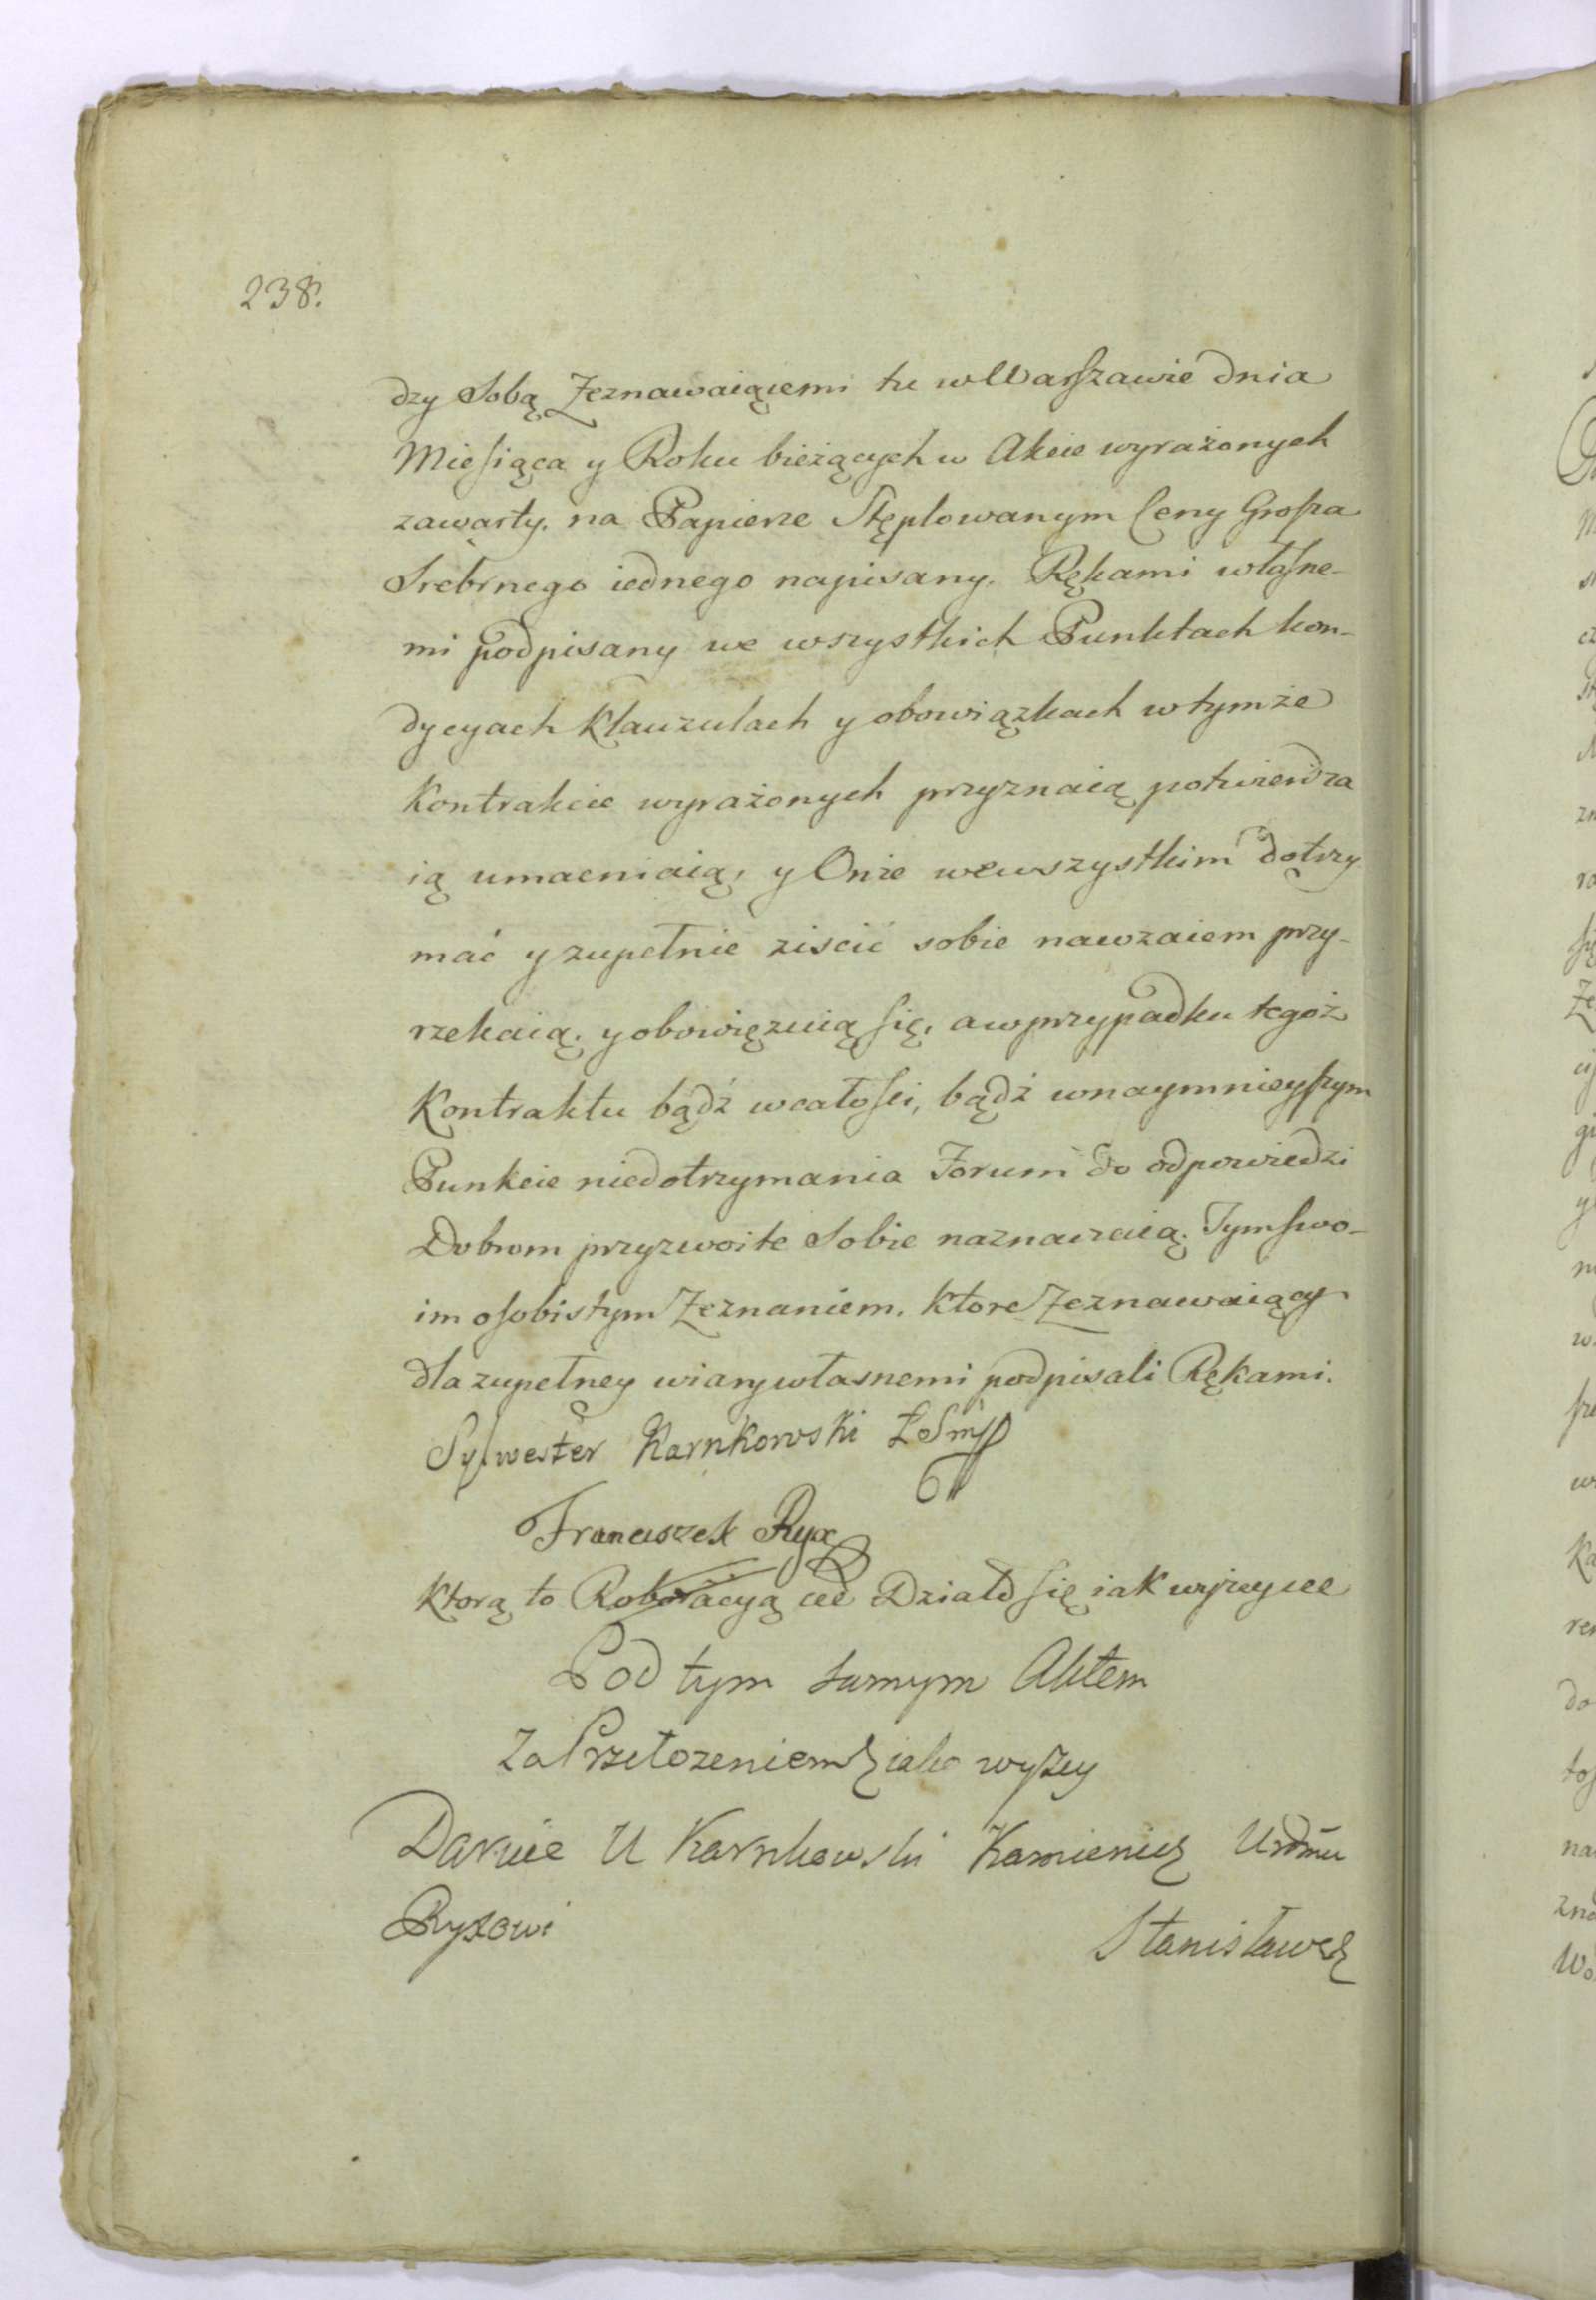 238.
dzy Sobą Zeznawaiącemi tu w Warszawie dnia
Miesiąca y Roku bieżących w Akcie wyrażonych
zawarty, na Papierze Stęplowanym Ceny Grosza
Srebrnego iednego napisany. Rękami własne-
mi podpisany we wszystkich Punktach kon-
dycyach Klauzulach y obowiązkach w tymże
Kontrakcie wyrażonych przyznaią potwierdza
ią umacniaią, y Onże we wszystkim dotrzy
mać y zupełnie ziscić sobie nawzaiem przy-
rzekaią, y obowięzuią się, a w przypadku tegoż
Kontraktu bądź w całości, bądź w naymnieyszym
Punkcie niedotrzymania Forum do odpowiedzi
Dobrom przyzwoite Sobie naznaczaią. Tym swo-
im osobistym Zeznaniem. Ktore Zeznawaiący
dla zupełney wiary własnemi podpisali Rękami.
Sylwester Karnkowski
Franciszek Ryx
Ktorą to Roboracyą Działo się iak wyżey
Pod tym samym Aktem
Za Przełożeniem iako wyżey
Daruie U Karnkowski Kamienicę
Ryxowi
Stanisław